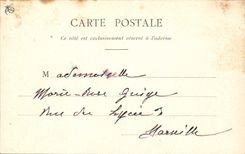 CARTE POSTALE
Ce côté est exclusivement réservé à l'adresse
Mademoiselle
Marie-Rose
Rue du Lycée 3
Marseille